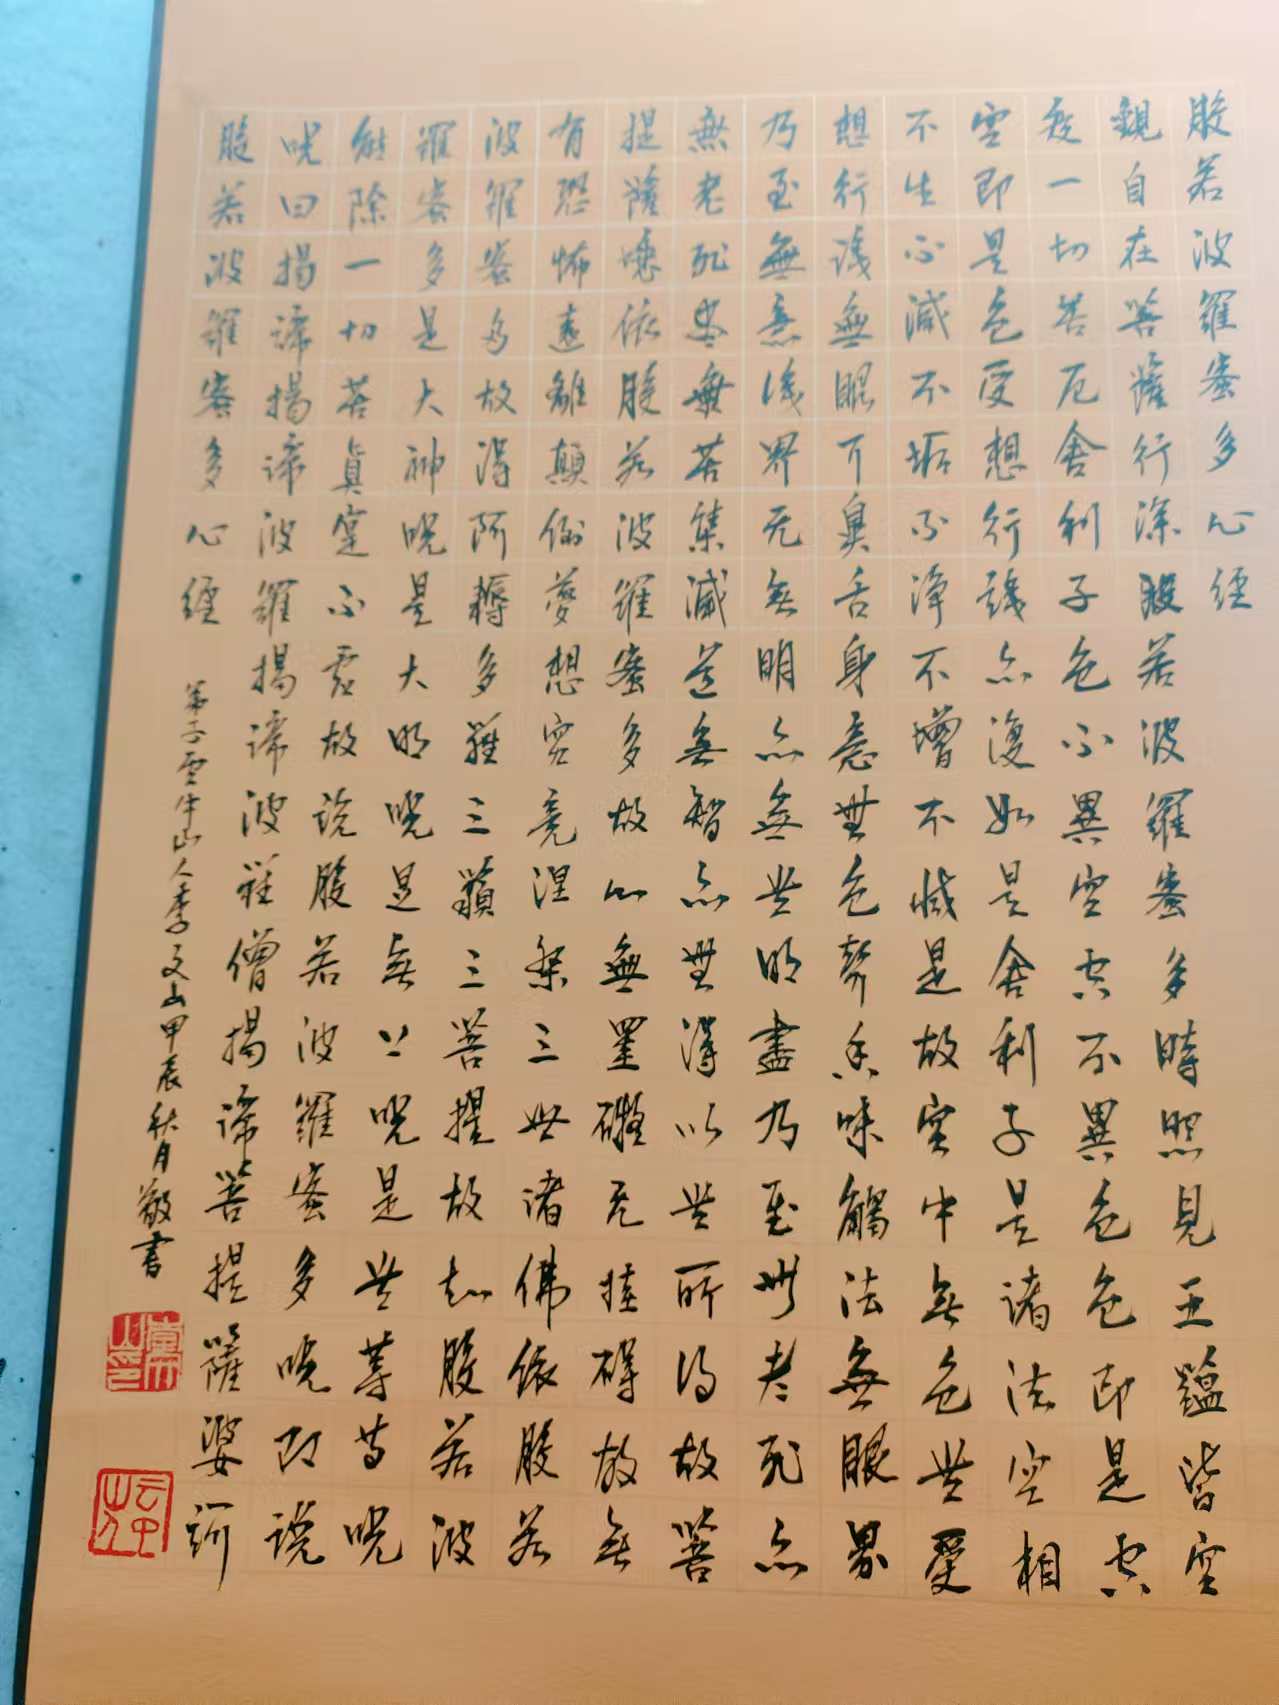 般若波羅蜜多心經
觀自在菩薩行深般若波羅蜜多時照見五蘊皆空
度一切苦厄舍利子色不異空空不異色色即是空
空即是色受想行識亦復如是舍利子是諸法空相
不生不滅不垢不淨不增不減是故空中無色無受
想行識無眼耳鼻舌身意無色聲香味觸法無眼界
乃至無意識界无無明亦無無明盡乃至無老死亦
無老死盡無苦集滅道無智亦無得以無所得故菩
提薩埵依般若波羅蜜多故心無罣礙无挂碍故無
有恐怖遠離顛倒夢想究竟涅槃三世諸佛依般若
波羅蜜多故得阿耨多羅三藐三菩提故知般若波
羅蜜多是大神呪是大明呪是無上呪是無等等呪
能除一切苦真實不虛故說般若波羅蜜多呪即說
呪曰揭諦揭諦波羅揭諦波羅僧揭諦菩提薩婆訶
般若波羅蜜多心經
弟子雲牛山人李文山甲辰秋月敬書